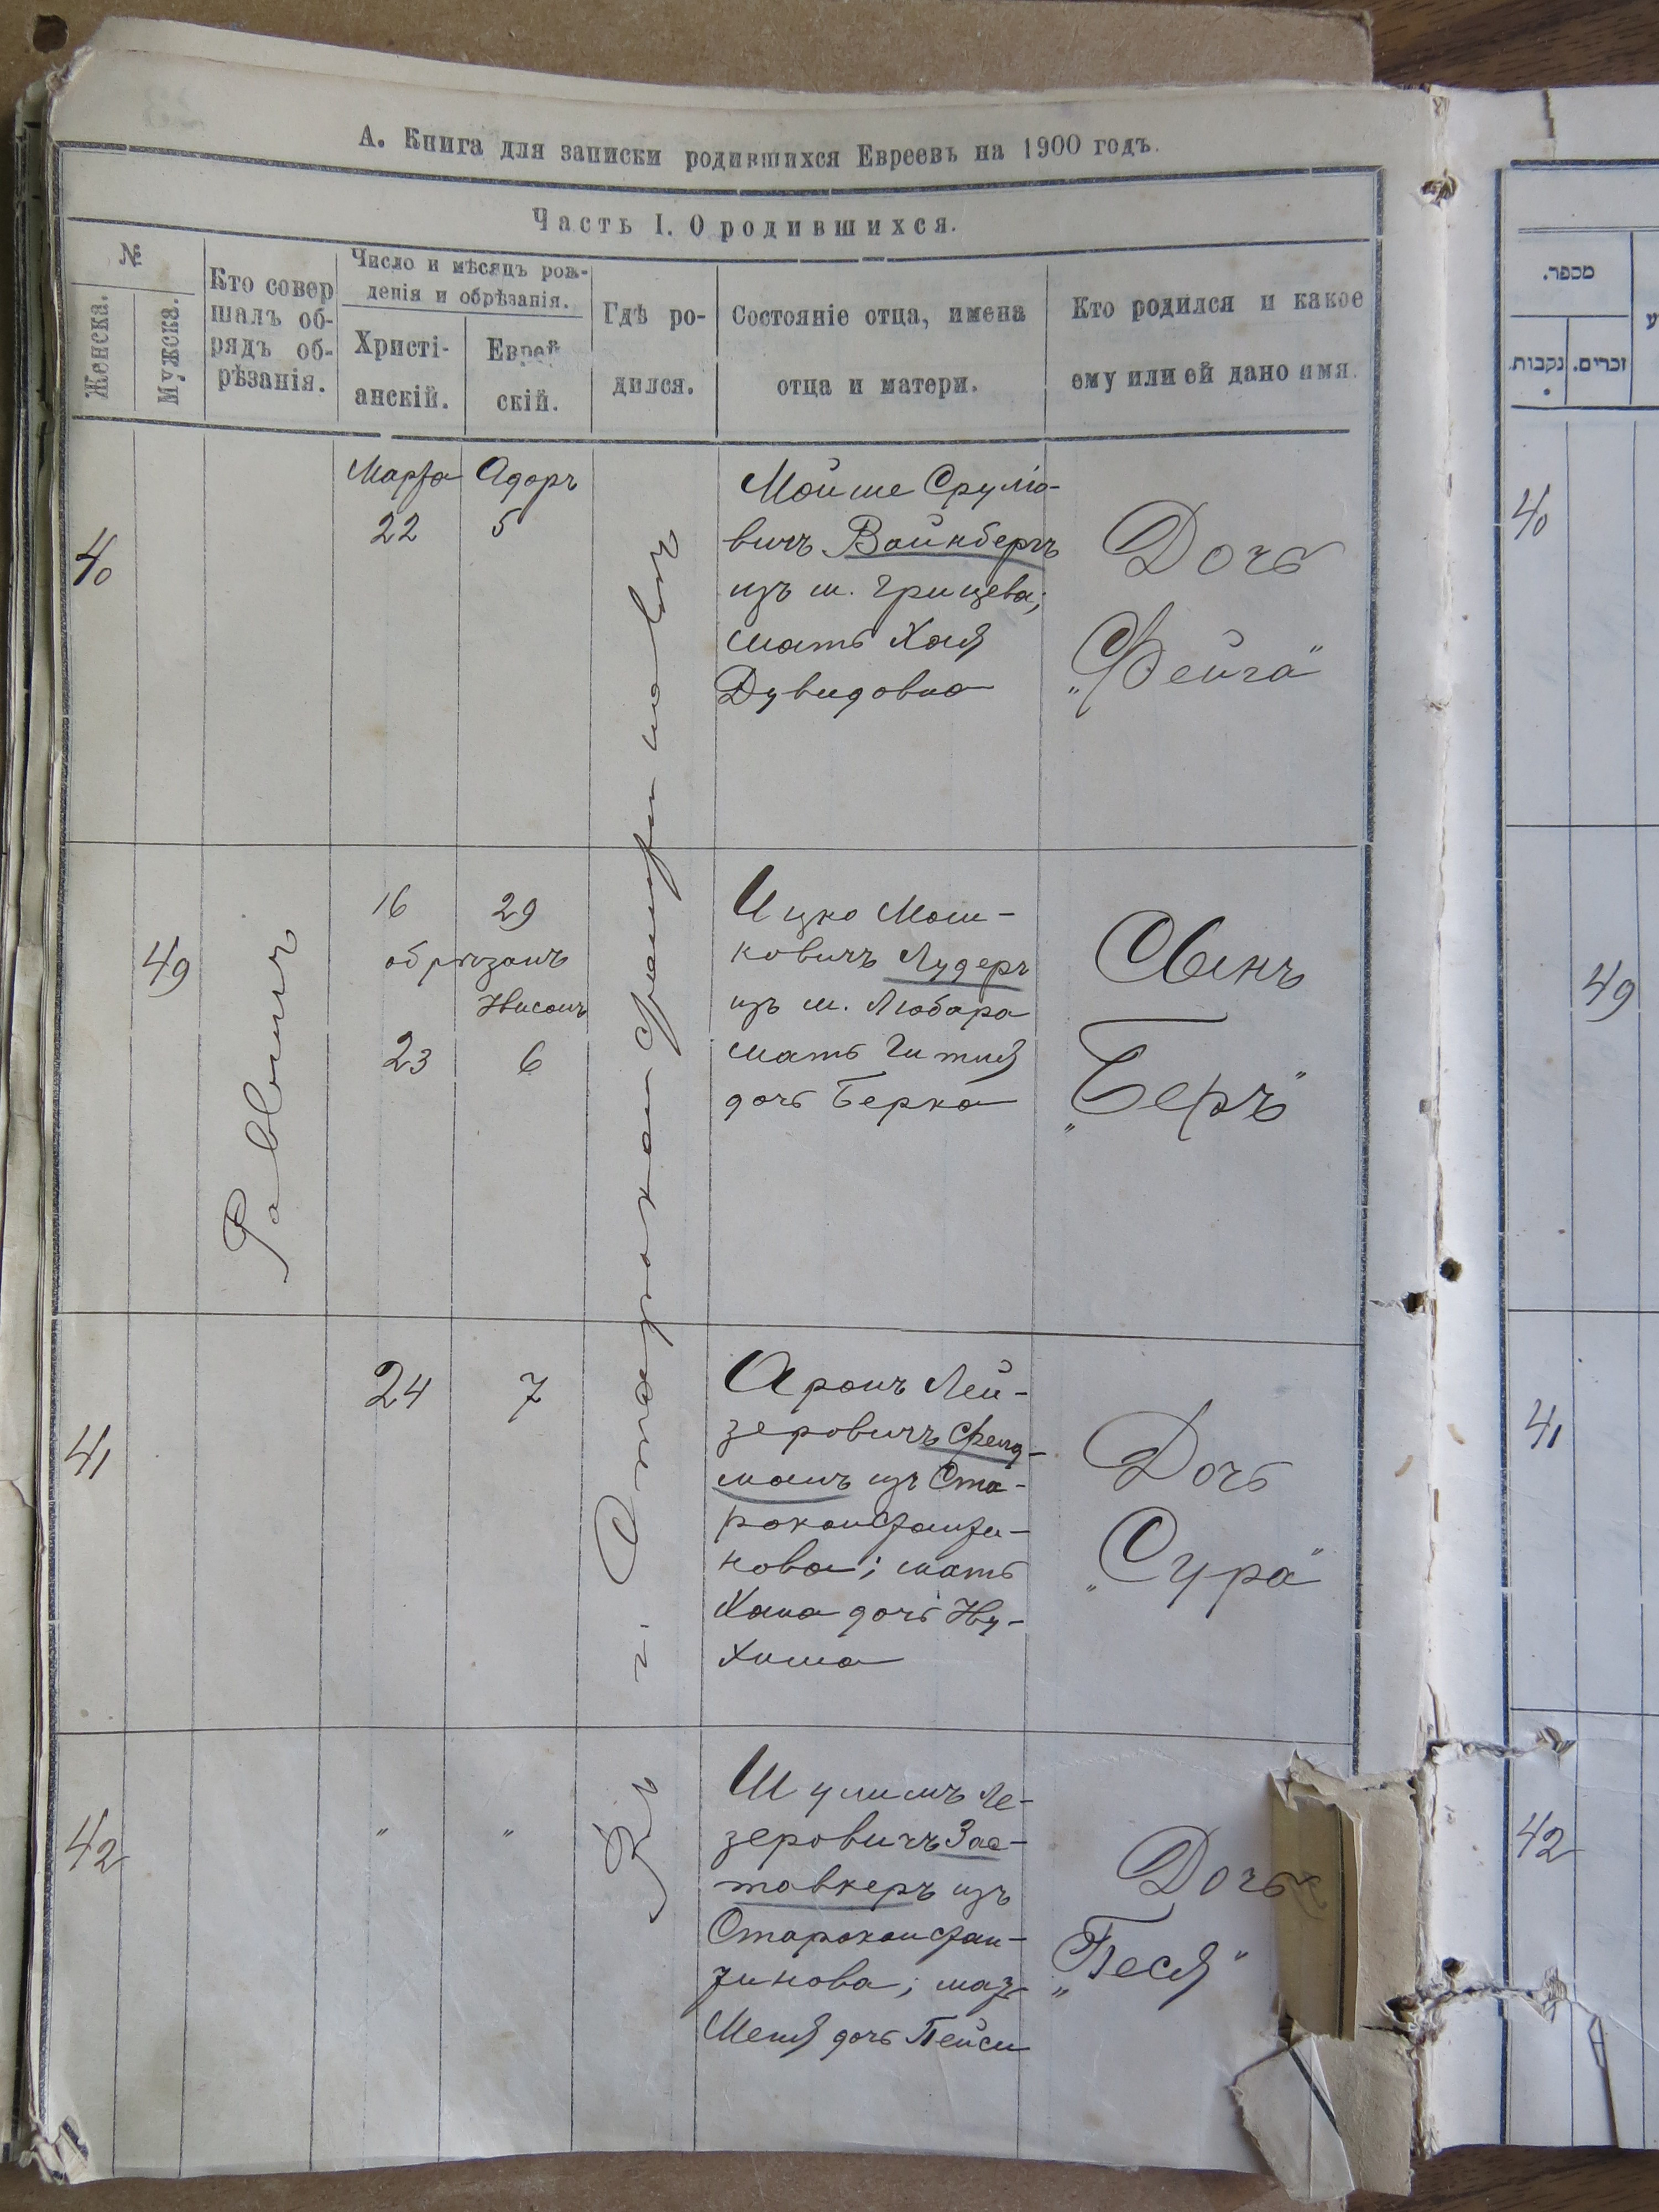 А. Книга для записки родившихся Евреевъ на 1900 годъ.
Часть I. О родившихся.
№
Женска.
Мужска.
Кто совер
шалъ об-
рядъ об-
рѣзанія.
Число и мѣсяцъ рож-
денія и обрѣзанія.
Христі-
анскій.
Еврей
скій.
Гдѣ ро-
дился.
Состояніе отца, имена
отца и матери.
Кто родился и какое
ему или ей дано имя.
Въ г. Староконстантиновѣ
Раввинъ
40
Марта
22
Адаръ
5
Мойше Срулю-
вичъ Вайнбергъ
изъ м. Грицева;
мать Хая
Дувидовна
Дочь
„Фейга“
49
16 29
обрѣзанъ
Нисанъ
23 6
Ицко Мош-
ковичъ Лудеръ
изъ м. Любара
мать Гитля
дочь Берка
Сынъ
„Беръ“
41
24 7
Аронъ Лей-
зеровичъ Фельд-
манъ изъ Ста-
роконстанти-
нова; мать
Хана дочь Ну-
хима
Дочь
„Сура“
42
" "
Шулимъ Ле-
зеровичъ Зас-
тавкеръ изъ
Староконстан-
тинова; мать
Меня дочь Пейси
Дочь
„Песя“
מכפר.
נקבות.
זכרים.
ע
40
49
41
42